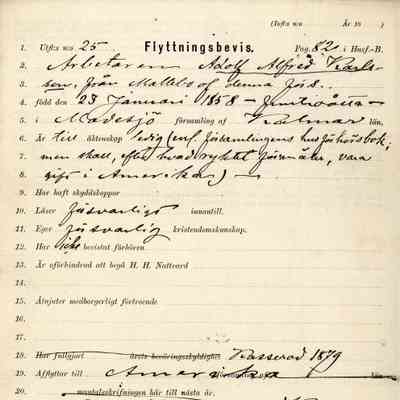 (Inflx n:o År 18 )
1. Utflx n:o 25. Flyttningsbevis. Pag. 82 i Husf.-B.
2. Arbetaren Adolf Alfrid Karls-
3. son, från Mallebo af denna förs.
4. född den 23 Januari 1858 —
5. i Madesjö församling af Kalmar län,
6. är till äktenskap ledig (enl. församlingens husförhörsbok;
7. men skall, efter hvad ryktet förmäler, vara
8. gift i Amerika) —
9. Har haft skyddskoppor
10. Läser försvarligt innantill.
11. Eger försvarlig kristendomskunskap.
12. Har icke bevistat förhören
13. Är oförhindrad att begå H. H. Nattvard
14.
15. Åtnjuter medborgerligt förtroende
16.
17.
18. Har fullgjort årets beväringsskyldighet Kasserad 1879
19. Afflyttar till Amerika län,
20. mantalsskrifningen här till nästa år.